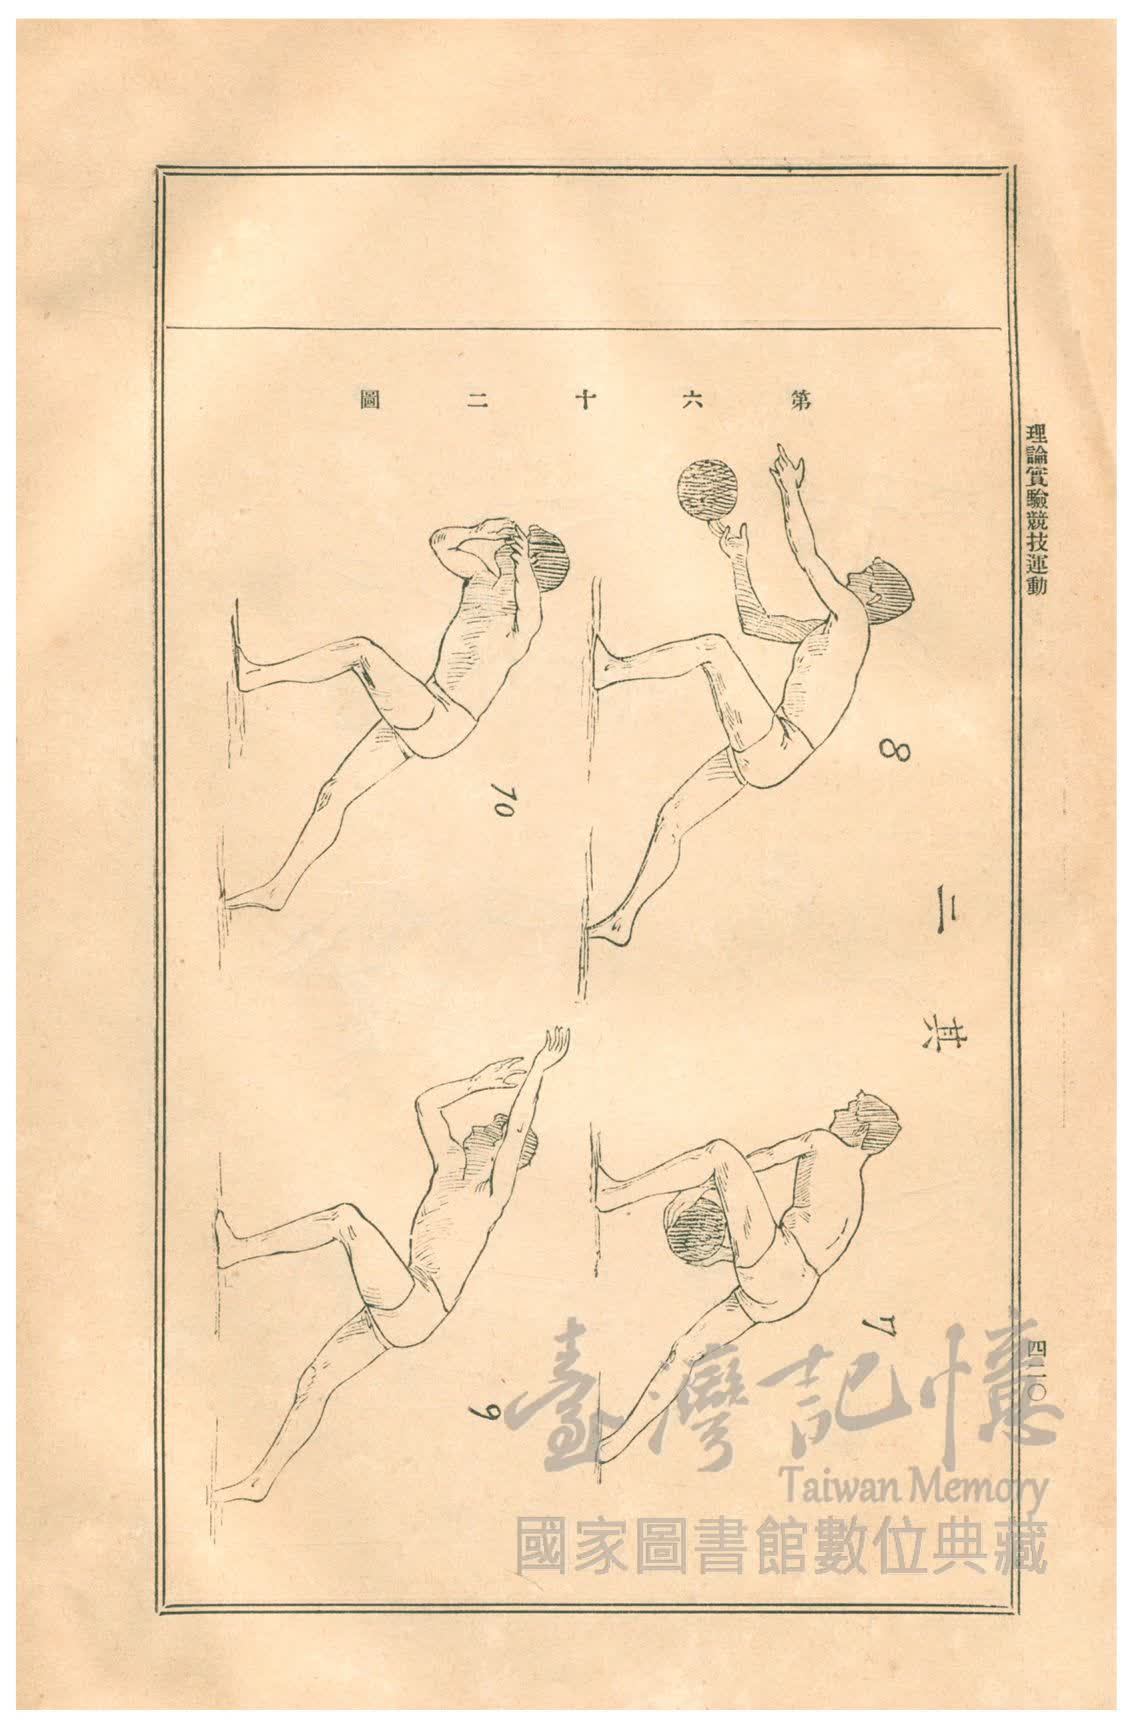 理論實驗競技運動
四二〇
第六十二圖
其二
8
7
10
9
臺灣記憶
Taiwan Memory
國家圖書館數位典藏